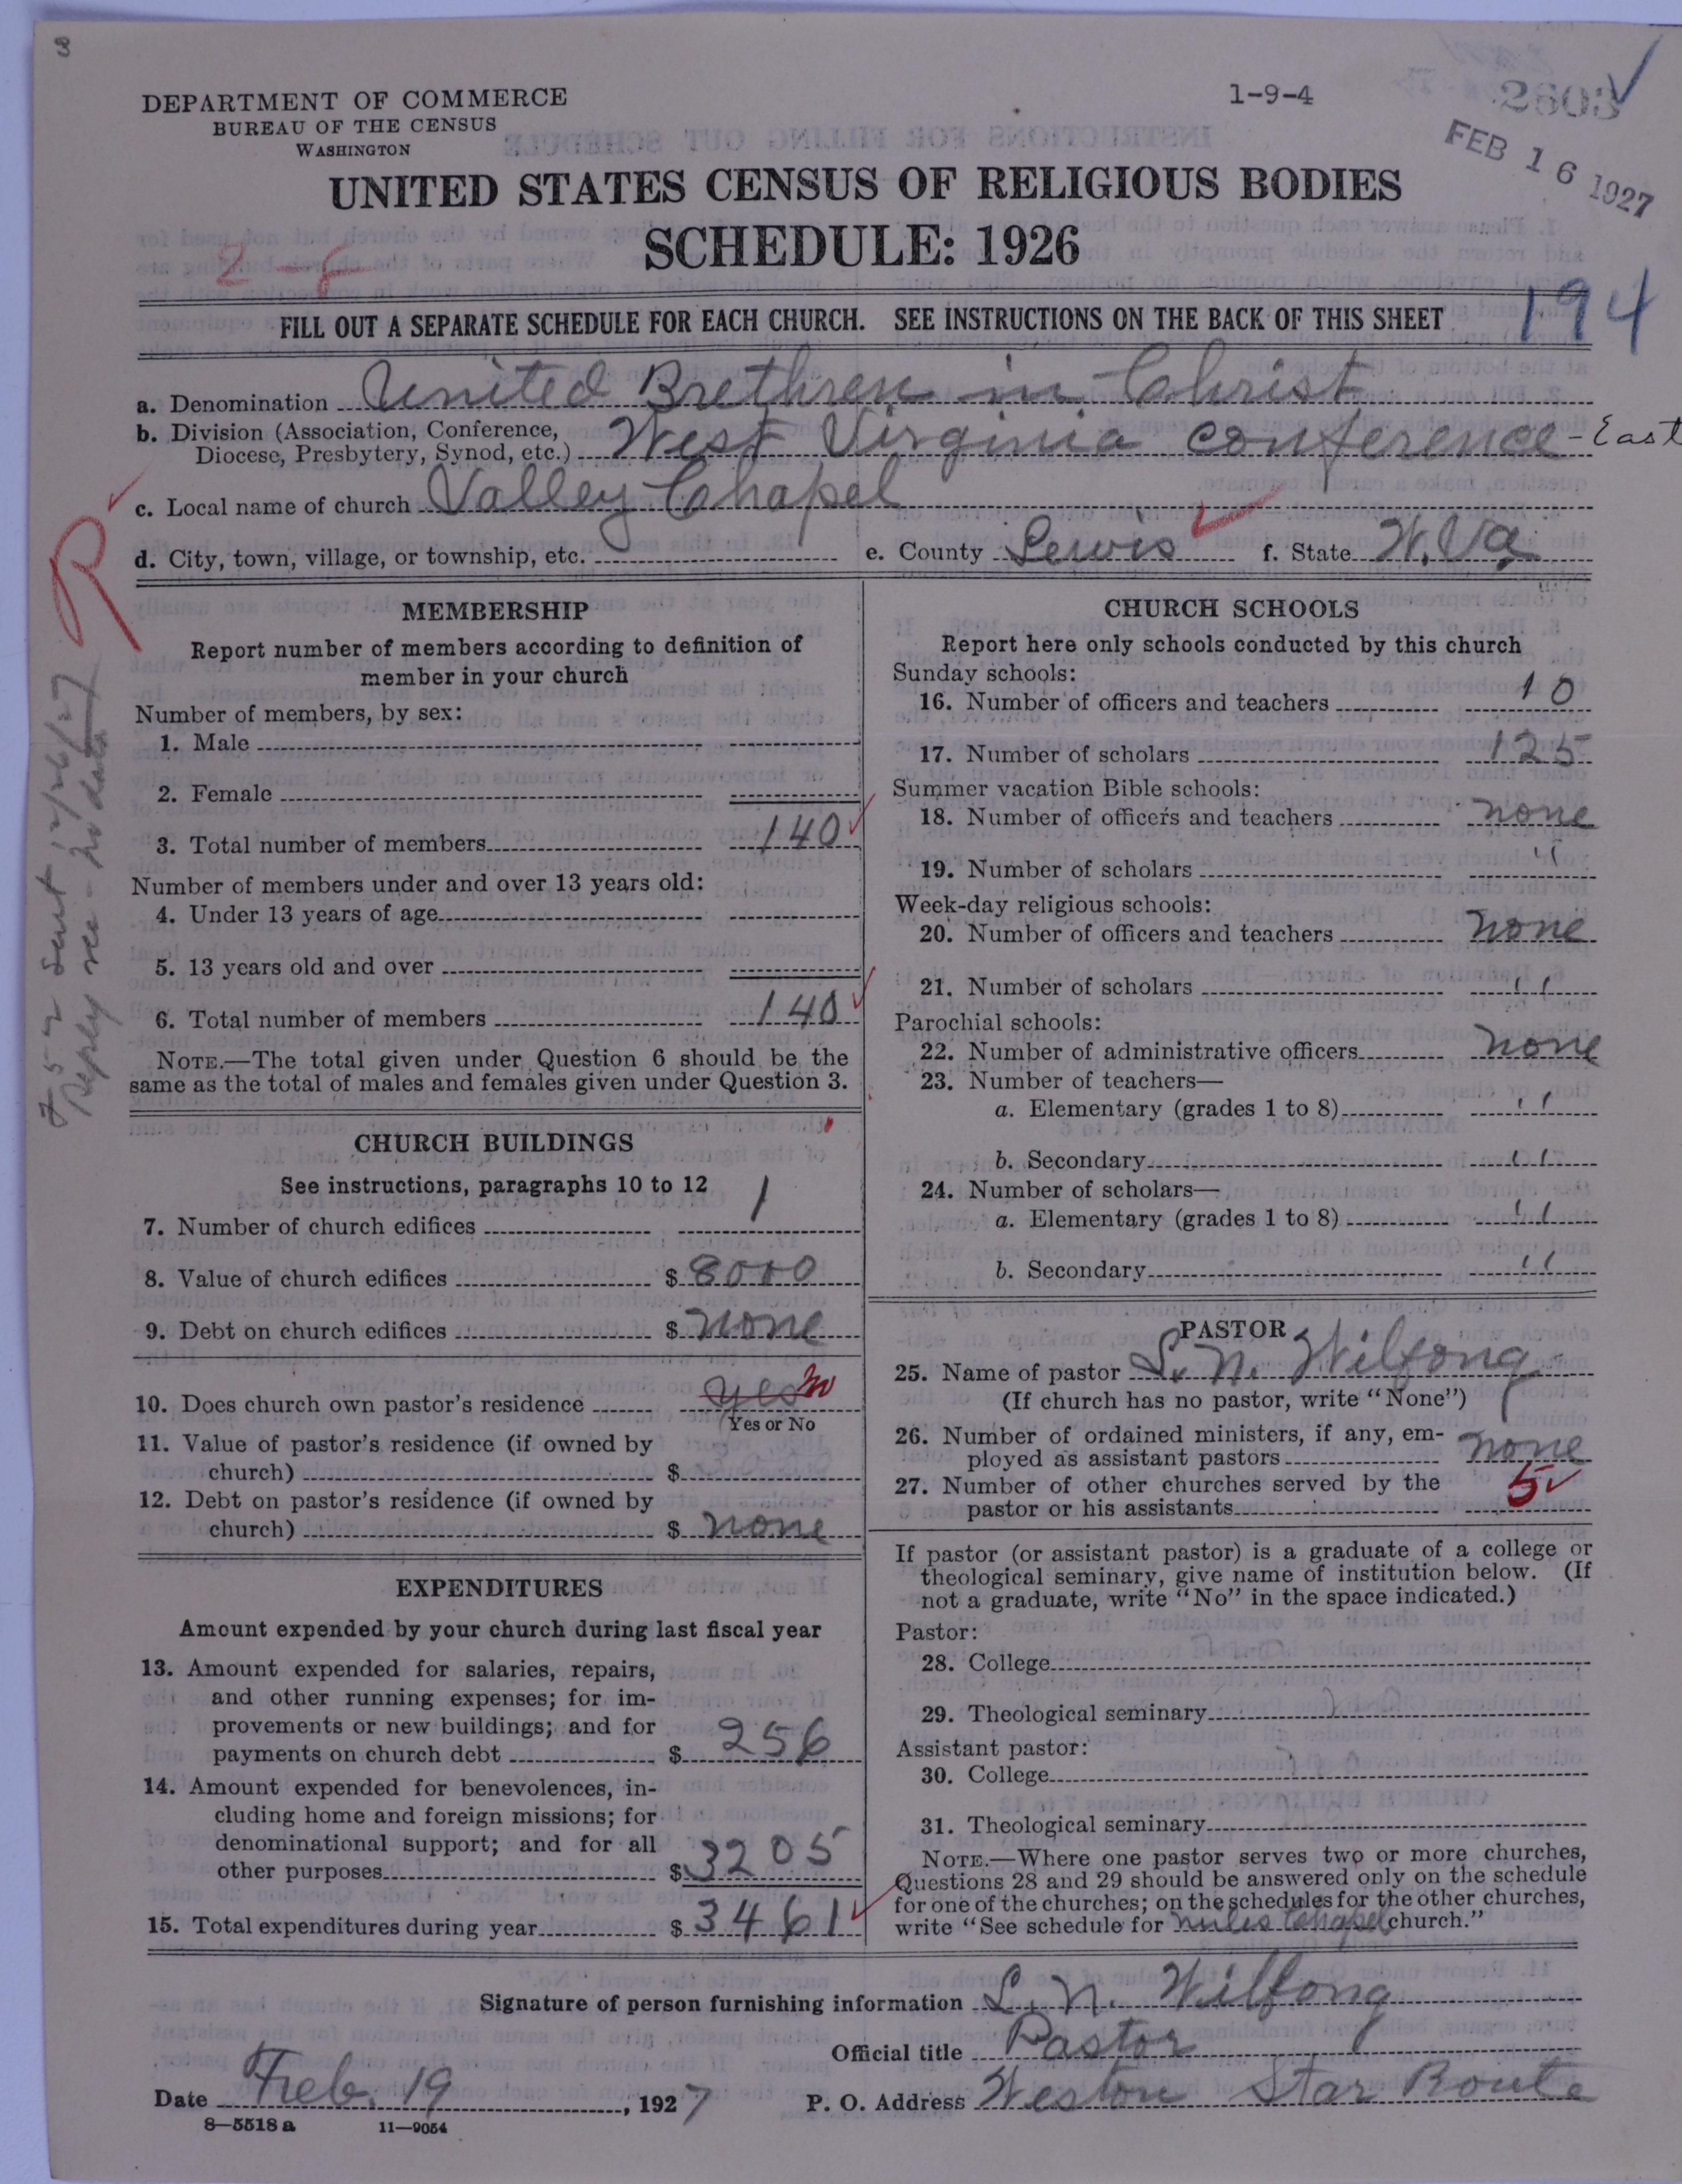 3
DEPARTMENT OF COMMERCE
BUREAU OF THE CENSUS
WASHINGTON
1-9-4
2603
FEB 16 1927
UNITED STATES CENSUS OF RELIGIOUS BODIES
SCHEDULE: 1926
194
FILL OUT A SEPARATE SCHEDULE FOR EACH CHURCH. SEE INSTRUCTIONS ON THE BACK OF THIS SHEET
a. Denomination United Brethren in Christ
b. Division (Association, Conference,
Diocese, Presbytery, Synod, etc.) West Virginia conference - East
c. Local name of church Valley Chapel
d. City, town, village, or township, etc. e. County Lewis f. State W. Va
R
MEMBERSHIP
Report number of members according to definition of
member in your church
Number of members, by sex:
1. Male
2. Female
3. Total number of members 140
Number of members under and over 13 years old:
4. Under 13 years of age
5. 13 years old and over
6. Total number of members 140
NOTE.—The total given under Question 6 should be the
same as the total of males and females given under Question 3.
CHURCH BUILDINGS
See instructions, paragraphs 10 to 12
7. Number of church edifices 1
8. Value of church edifices $ 8000
9. Debt on church edifices $ none
10. Does church own pastor's residence yes no
Yes or No
11. Value of pastor's residence (if owned by
church) $
12. Debt on pastor's residence (if owned by
church) $ none
EXPENDITURES
Amount expended by your church during last fiscal year
13. Amount expended for salaries, repairs,
and other running expenses; for im-
provements or new buildings; and for
payments on church debt $ 256
14. Amount expended for benevolences, in-
cluding home and foreign missions; for
denominational support; and for all
other purposes $ 3205
15. Total expenditures during year $ 3461
CHURCH SCHOOLS
Report here only schools conducted by this church
Sunday schools:
16. Number of officers and teachers 10
17. Number of scholars 125
Summer vacation Bible schools:
18. Number of officers and teachers none
19. Number of scholars "
Week-day religious schools:
20. Number of officers and teachers none
21. Number of scholars "
Parochial schools:
22. Number of administrative officers none
23. Number of teachers—
a. Elementary (grades 1 to 8) "
b. Secondary "
24. Number of scholars—
a. Elementary (grades 1 to 8) "
b. Secondary "
PASTOR
25. Name of pastor L. N. Wilfong
(If church has no pastor, write "None")
26. Number of ordained ministers, if any, em-
ployed as assistant pastors none
27. Number of other churches served by the
pastor or his assistants 5
If pastor (or assistant pastor) is a graduate of a college or
theological seminary, give name of institution below. (If
not a graduate, write "No" in the space indicated.)
Pastor:
28. College
29. Theological seminary
Assistant pastor:
30. College
31. Theological seminary
NOTE.—Where one pastor serves two or more churches,
Questions 28 and 29 should be answered only on the schedule
for one of the churches; on the schedules for the other churches,
write "See schedule for Chapel church."
Signature of person furnishing information L. N. Wilfong
Official title Pastor
Date Feb. 19, 1927 P. O. Address Weston Star Route
8—5518 a 11—9054